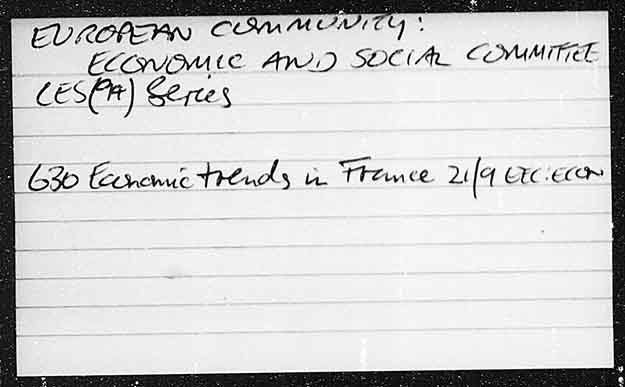 EUROPEAN COMMUNITY:
ECONOMIC AND SOCIAL COMMITTEE
CES(PA) Series
630 Economic trends in France 21/9 EEC:ECON